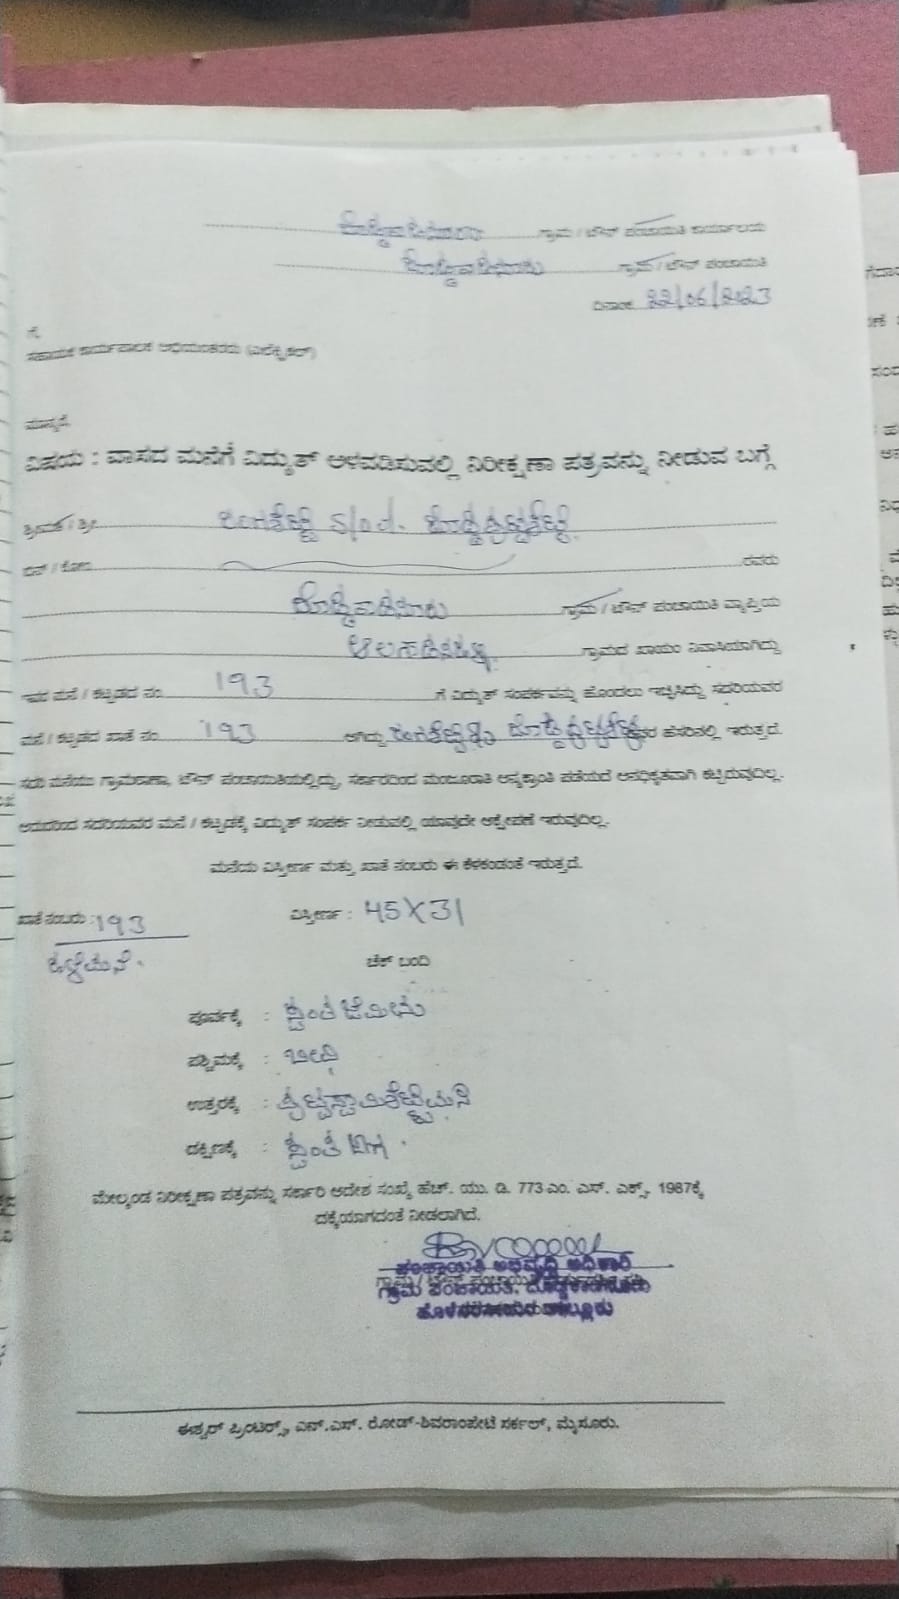 ದೊಡ್ಡಕಾಡನೂರು ಗ್ರಾಮ / ಟೌನ್ ಪಂಚಾಯಿತಿ ಕಾರ್ಯಾಲಯ
ದೊಡ್ಡಕಾಡನೂರು ಗ್ರಾಮ / ಟೌನ್ ಪಂಚಾಯಿತಿ
ದಿನಾಂಕ 22/06/2023
ಗೆ,
ಸಹಾಯಕ ಕಾರ್ಯಪಾಲಕ ಅಭಿಯಂತರರು (ಎಲೆಕ್ಟ್ರಿಕಲ್)
ಮಾನ್ಯರೆ,
ವಿಷಯ : ವಾಸದ ಮನೆಗೆ ವಿದ್ಯುತ್ ಅಳವಡಿಸುವಲ್ಲಿ ನಿರೀಕ್ಷಣಾ ಪತ್ರವನ್ನು ನೀಡುವ ಬಗ್ಗೆ
ಶ್ರೀಮತಿ / ಶ್ರೀ S/o
ಬಿನ್ / ಕೋಂ ರವರು
ದೊಡ್ಡಕಾಡನೂರು ಗ್ರಾಮ / ಟೌನ್ ಪಂಚಾಯಿತಿ ವ್ಯಾಪ್ತಿಯ
ಗ್ರಾಮದ ಖಾಯಂ ನಿವಾಸಿಯಾಗಿದ್ದು
ಇವರ ಮನೆ / ಕಟ್ಟಡದ ನಂ. 193 ಗೆ ವಿದ್ಯುತ್ ಸಂಪರ್ಕವನ್ನು ಹೊಂದಲು ಇಚ್ಛಿಸಿದ್ದು ಸದರಿಯವರ
ಮನೆ / ಕಟ್ಟಡದ ಖಾತೆ ನಂ. 193 ಆಗಿದ್ದು ರವರ ಹೆಸರಿನಲ್ಲಿ ಇರುತ್ತದೆ.
ಸದರಿ ಮನೆಯು ಗ್ರಾಮಠಾಣಾ, ಟೌನ್ ಪಂಚಾಯಿತಿಯಲ್ಲಿದ್ದು, ಸರ್ಕಾರದಿಂದ ಮಂಜೂರಾತಿ ಅನ್ಯಕ್ರಾಂತಿ ಪಡೆಯದೆ ಅನಧಿಕೃತವಾಗಿ ಕಟ್ಟಿರುವುದಿಲ್ಲ.
ಆದುದರಿಂದ ಸದರಿಯವರ ಮನೆ / ಕಟ್ಟಡಕ್ಕೆ ವಿದ್ಯುತ್ ಸಂಪರ್ಕ ನೀಡುವಲ್ಲಿ ಯಾವುದೇ ಆಕ್ಷೇಪಣೆ ಇರುವುದಿಲ್ಲ.
ಮನೆಯ ವಿಸ್ತೀರ್ಣ ಮತ್ತು ಖಾತೆ ನಂಬರು ಈ ಕೆಳಕಂಡಂತೆ ಇರುತ್ತದೆ.
ಖಾತೆ ನಂಬರು : 193 ವಿಸ್ತೀರ್ಣ : 45X31
ಚೆಕ್ ಬಂದಿ
ಪೂರ್ವಕ್ಕೆ : ಸ್ವಂತ ಜಮೀನು
ಪಶ್ಚಿಮಕ್ಕೆ : ಬೀದಿ
ಉತ್ತರಕ್ಕೆ : ಕೃಷ್ಣಸ್ವಾಮಿಶೆಟ್ಟಿ ಮನೆ
ದಕ್ಷಿಣಕ್ಕೆ : ಸ್ವಂತ
ಮೇಲ್ಕಂಡ ನಿರೀಕ್ಷಣಾ ಪತ್ರವನ್ನು ಸರ್ಕಾರಿ ಆದೇಶ ಸಂಖ್ಯೆ ಹೆಚ್. ಯು. ಡಿ. 773 ಎಂ. ಎಸ್. ಎಕ್ಸ್. 1987ಕ್ಕೆ
ದಕ್ಕೆಯಾಗದಂತೆ ನೀಡಲಾಗಿದೆ.
ಪಂಚಾಯಿತಿ ಅಭಿವೃದ್ಧಿ ಅಧಿಕಾರಿ
ಗ್ರಾಮ ಪಂಚಾಯಿತಿ, ದೊಡ್ಡಕಾಡನೂರು
ಹೊಳೆನರಸೀಪುರ ತಾಲ್ಲೂಕು
ಈಶ್ವರ್ ಪ್ರಿಂಟರ್ಸ್, ಎನ್.ಎಸ್. ರೋಡ್-ಶಿವರಾಂಪೇಟೆ ಸರ್ಕಲ್, ಮೈಸೂರು.